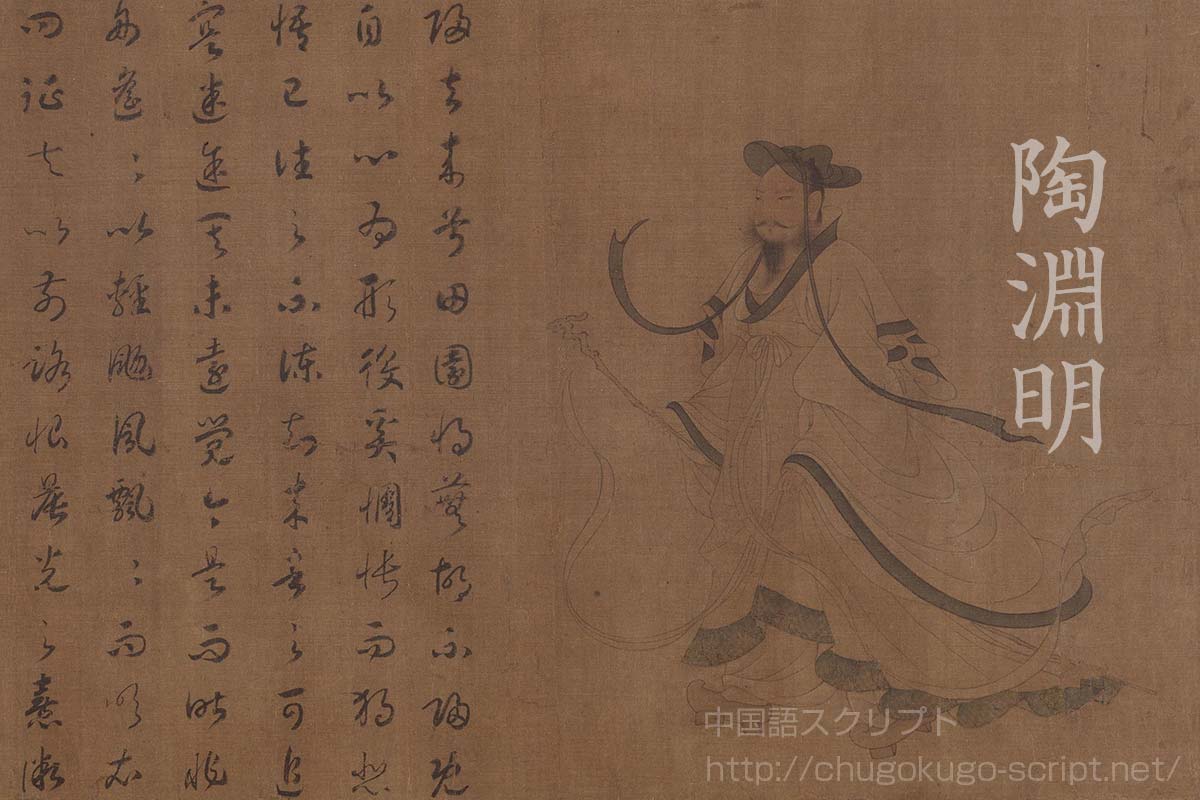 陶淵明
歸去来兮田園将蕪胡不歸既
自以心為形役奚惆悵而獨悲
悟已往之不諫知来者之可追
寔迷途其未遠覺今是而昨非
舟遙〻以輕颺風飄〻而吹衣
問征夫以前路恨晨光之熹微
中国語スクリプト
http://chugokugo-script.net/